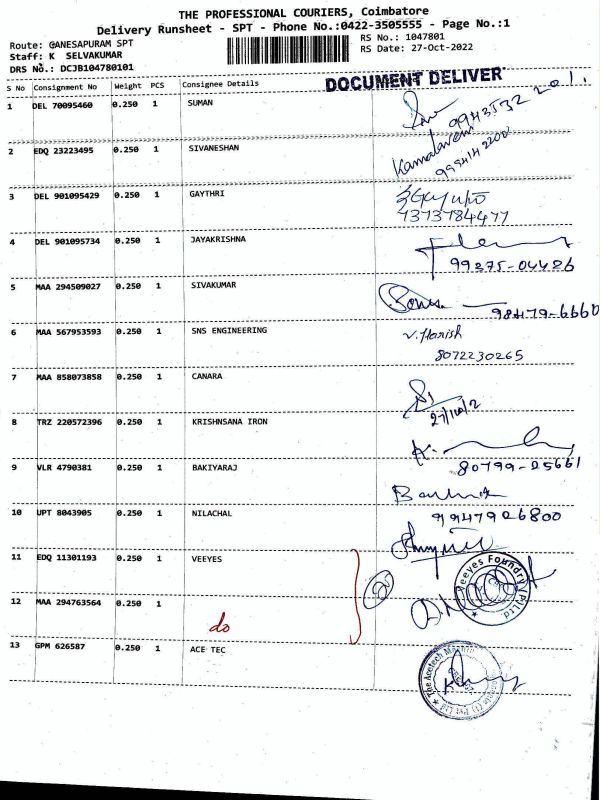 THE PROFESSIONAL COURIERS, Coimbatore
Delivery Runsheet - SPT - Phone No.:0422-3505555 - Page No.:1
Route: GANESAPURAM SPT
RS No.: 1047801
Staff: K SELVAKUMAR
RS Date: 27-Oct-2022
DRS No.: DCJB104780101
DOCUMENT DELIVER
S No Consignment No Weight PCS Consignee Details
1 DEL 70095460 0.250 1 SUMAN
Kamalaveni
2 EDQ 23223495 0.250 1 SIVANESHAN
3 DEL 901095429 0.250 1 GAYTHRI
7373784477
4 DEL 901095734 0.250 1 JAYAKRISHNA
99375-04426
5 MAA 294509027 0.250 1 SIVAKUMAR
98479-6660
6 MAA 567953593 0.250 1 SNS ENGINEERING V. Harish
8072230265
7 MAA 858073858 0.250 1 CANARA
27/10/2
8 TRZ 220572396 0.250 1 KRISHNSANA IRON
80799-25661
9 VLR 4790381 0.250 1 BAKIYARAJ
10 UPT 8043905 0.250 1 NILACHAL 9947926800
11 EDQ 11301193 0.250 1 VEEYES
Veeyes Foundry (P) Ltd
12 MAA 294763564 0.250 1
do
13 GPM 626587 0.250 1 ACE TEC